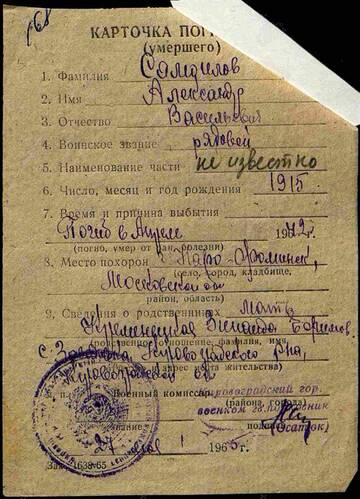 168
КАРТОЧКА ПОГ
(умершего)
1. Фамилия Самойлов
2. Имя Александр
3. Отчество Васильевич
4. Воинское звание рядовой
5. Наименование части не известно
6. Число, месяц и год рождения 1915
7. Время и причина выбытия
Погиб в Апреле 1942 г.
(погиб, умер от ран, болезни)
8. Место похорон Наро-Фоминск,
(село, город, кладбище,
Московской обл
район, область)
9. Сведения о родственниках мать
Зинаида
родственное отношение, фамилия, имя,
с. Кировоградского р-на,
адрес места жительства)
Кировоградской обл
Военный комиссар Кировоградский гор.
(района, города)
военком
подпись (Осатюк)
27 1965 г.
Зак. 1638-65